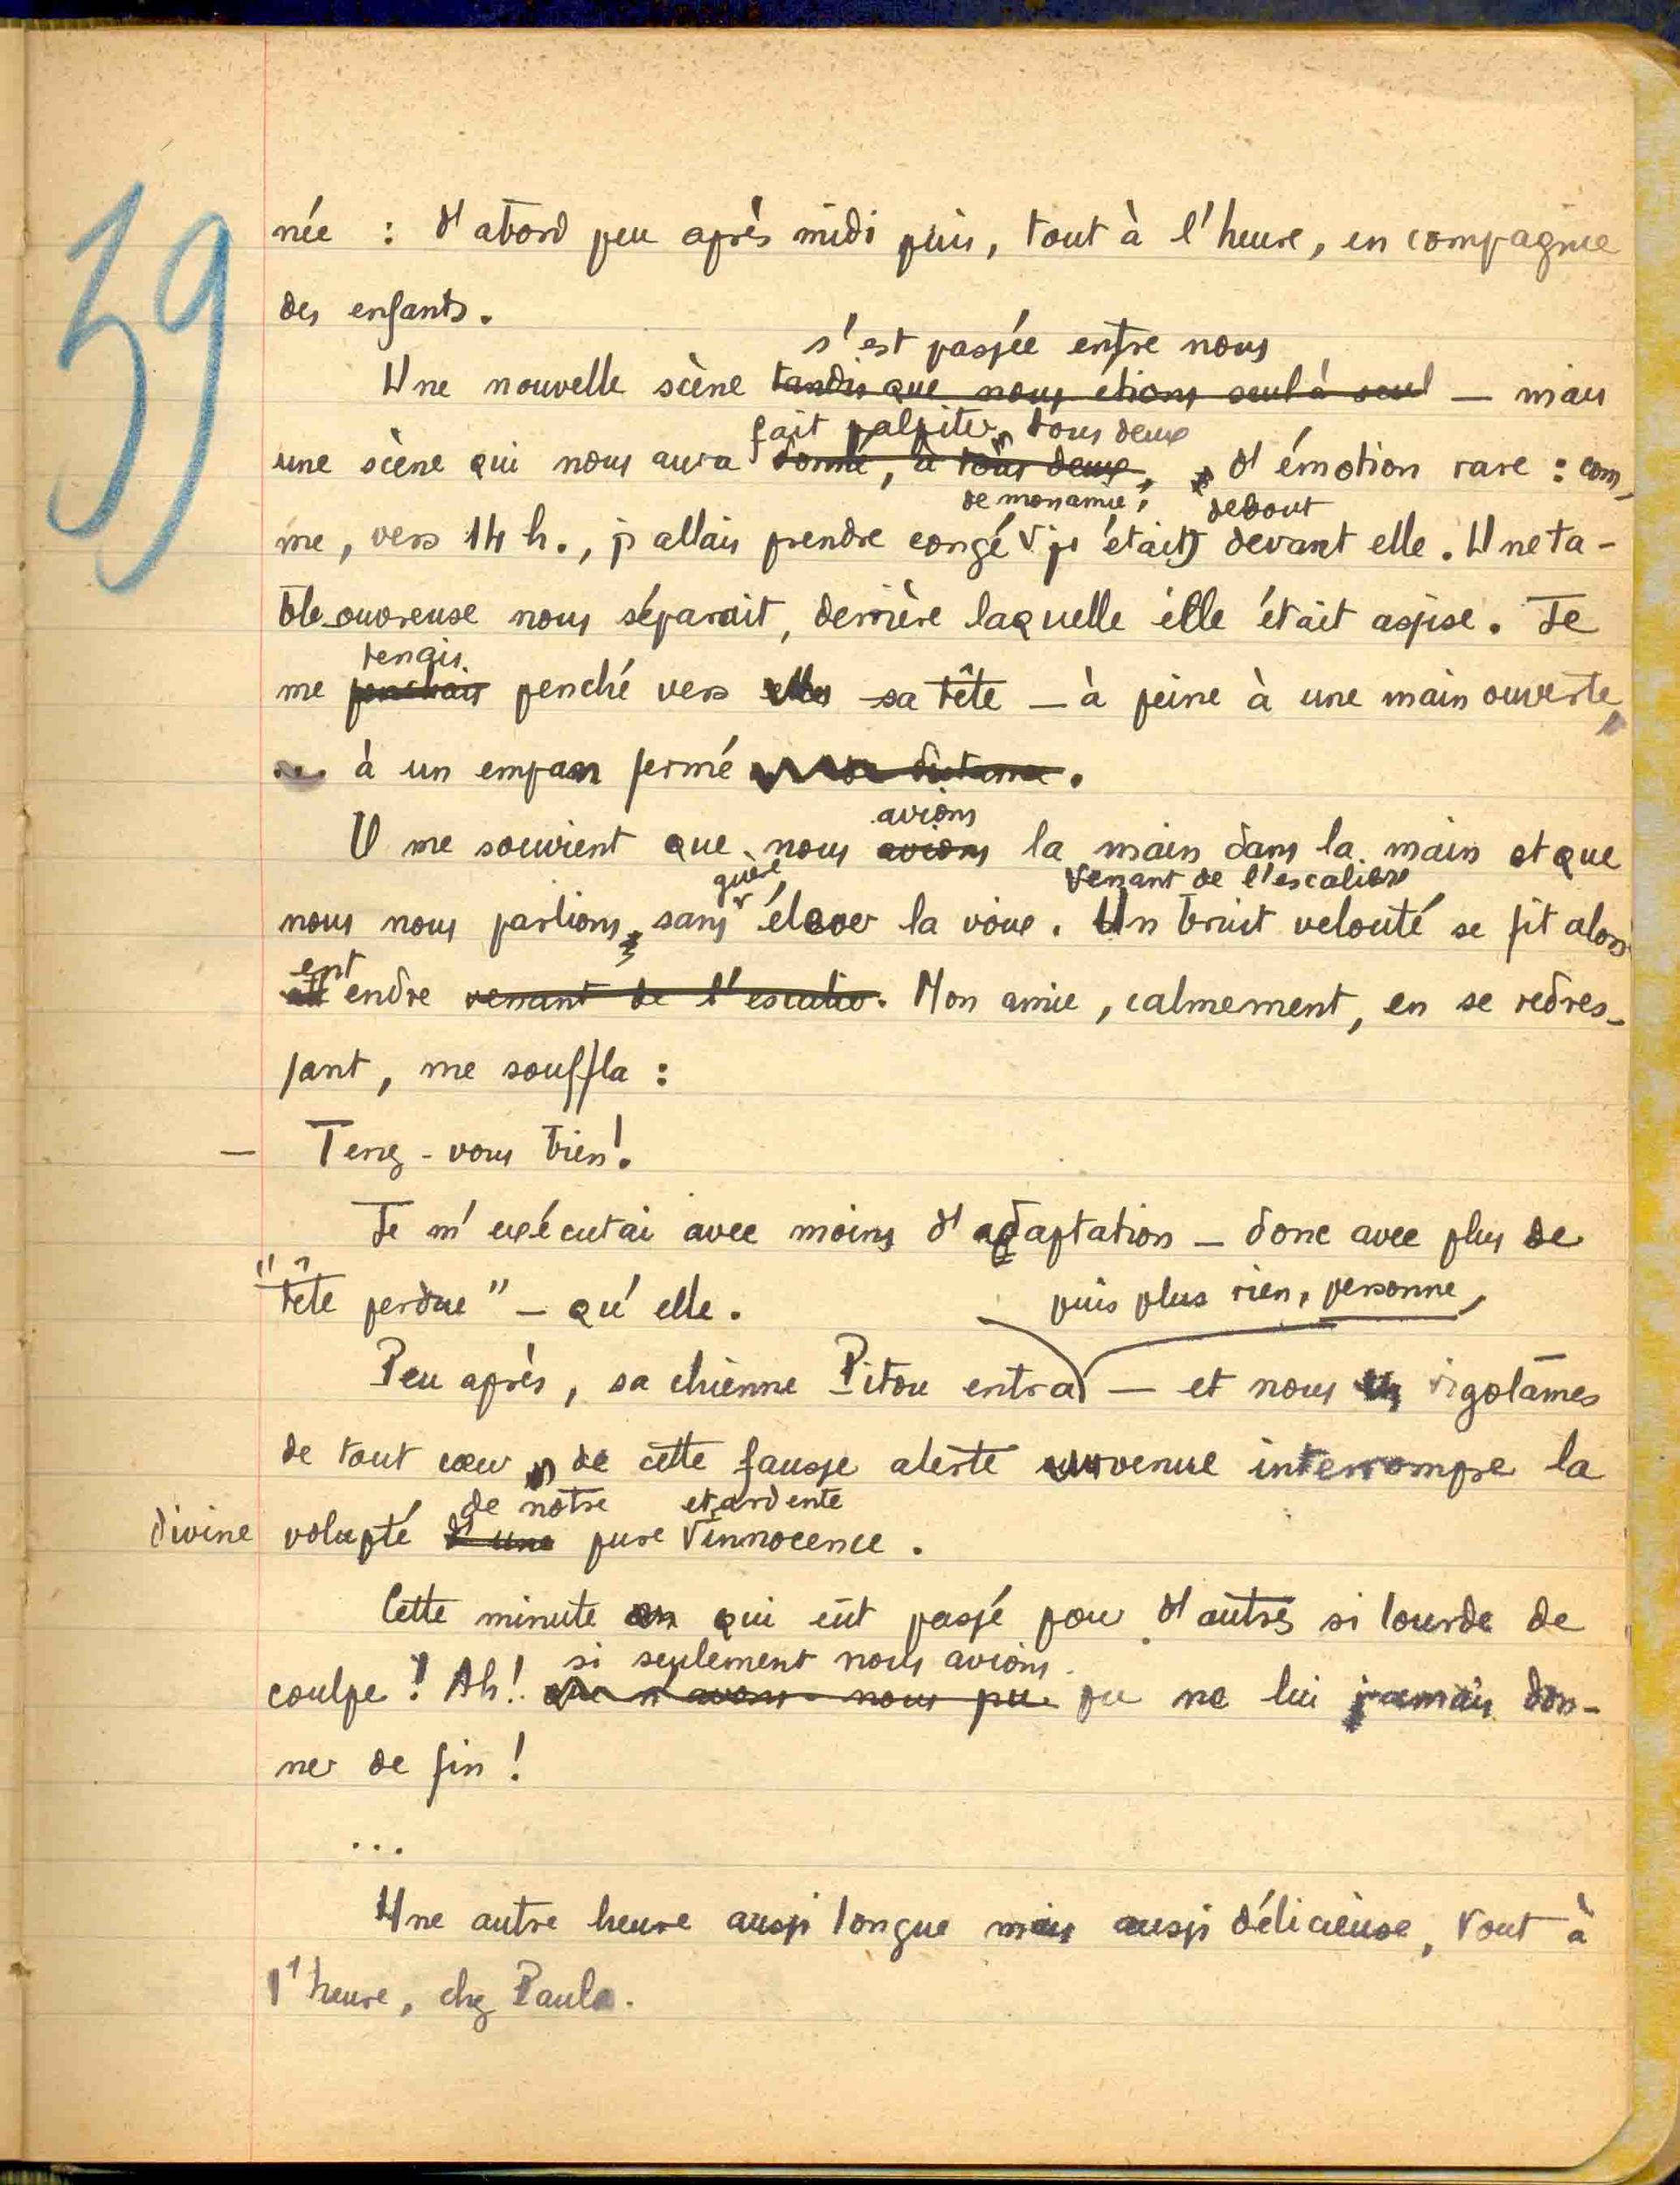 39
née : d'abord peu après midi puis, tout à l'heure, en compagnie
des enfants.
s'est passée entre nous
Une nouvelle scène tandis que nous étions seul à seul — mais
fait palpiter, tous deux
une scène qui nous aura donné, à tous deux, d'émotion rare : com-
de mon amie, debout
me, vers 14 h., j'allais prendre congé j'étais devant elle. Une ta-
ble-ouvreuse nous séparait, derrière laquelle elle était assise. Je
tenais
me penchais penché vers elle sa tête — à peine à une main ouverte,
à un empan fermé distance.
avions
Il me souvient que nous avions la main dans la main et que
guère venant de l'escalier
nous nous parlions, sans élever la voix. Un bruit velouté se fit alors
ent
attendre venant de l'escalier. Mon amie, calmement, en se redres-
sant, me souffla :
— Tenez-vous bien !
Je m'exécutai avec moins d'adaptation — donc avec plus de
"tête perdue" — qu'elle.
puis plus rien, personne,
Peu après, sa chienne Pitou entra — et nous rigolâmes
de tout cœur, de cette fausse alerte survenue interrompre la
de notre et ardente
divine volupté d'une pure innocence.
Cette minute qui eût passé pour d'autres si lourde de
si seulement nous avions
coulpe ! Ah ! que n'avons-nous pu pu ne lui jamais don-
ner de fin !
...
Une autre heure aussi longue mais aussi délicieuse, tout à
l'heure, chez Paula.